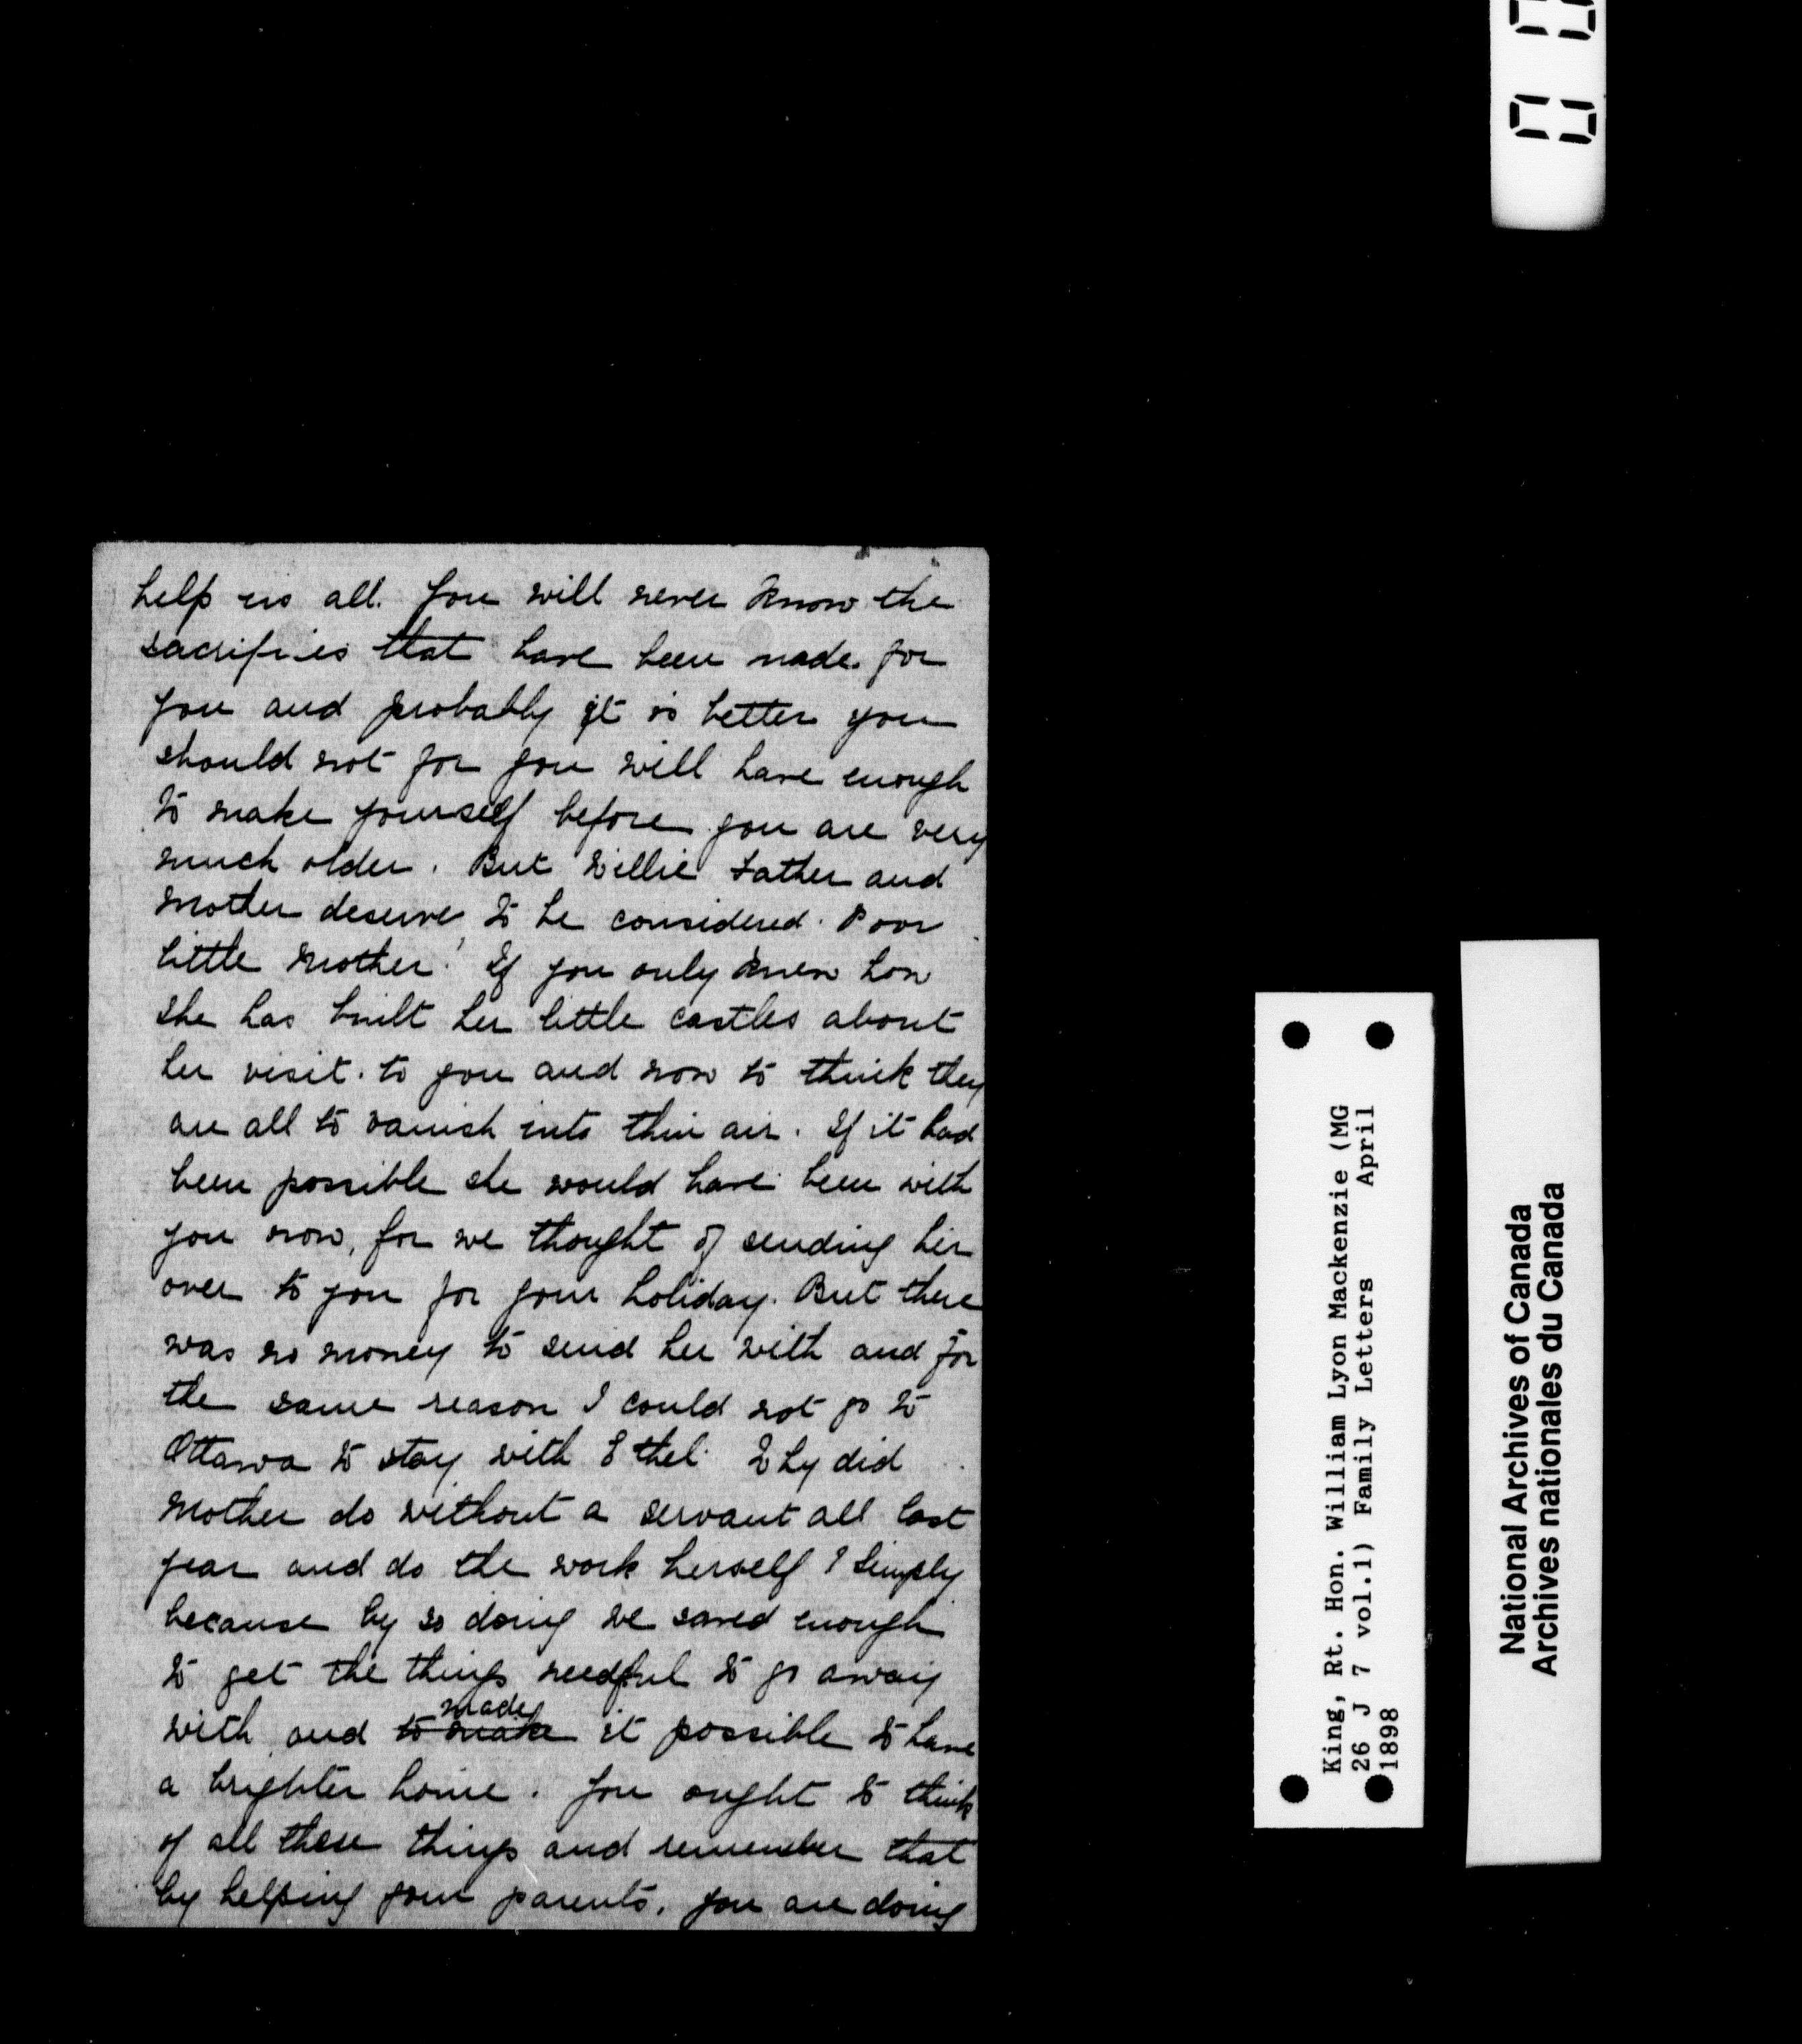 help us all. You will never know the
sacrifices that have been made for
you and probably it is better you
should not for you will have enough
to make yourself before you are very
much older. But Willie Father and
Mother deserve to be considered. Poor
little Mother! If you only knew how
she has built her little castles about
her visit to you and now to think they
are all to vanish into thin air. If it had
been possible she would have been with
you now, for we thought of sending her
over to you for your holiday. But there
was no money to send her with and for
the same reason I could not go to
Ottawa to stay with Ethel. Why did
Mother do without a servant all last
year and do the work herself? Simply
because by so doing we saved enough
to get the things needful to go away
with, and to make made it possible to have
a brighter home. You ought to think
of all these things and remember that
by helping your parents, you are doing
King, Rt. Hon. William Lyon Mackenzie (MG
26 J 7 vol.1) Family Letters April
1898
National Archives of Canada
Archives nationales du Canada